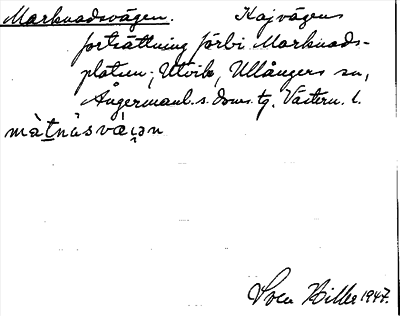 Marknadsvägen. Kajvägens
fortsättning förbi Marknads-
platsen; Utvik, Ullångers sn,
Ångermanl. s. doms. tg. Västern. l.
màt̠nàsvài̯ən
Sven Hiller 1947.